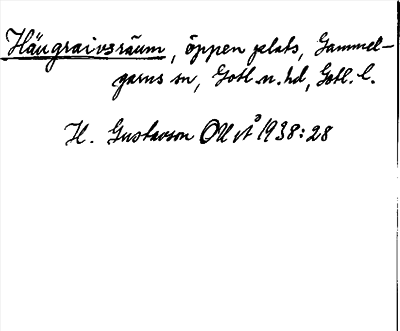 Häugraivsräum, öppen plats, Gammel-
garns sn, Gotl. n. hd, Gotl. l.
H. Gustavson 1938:28